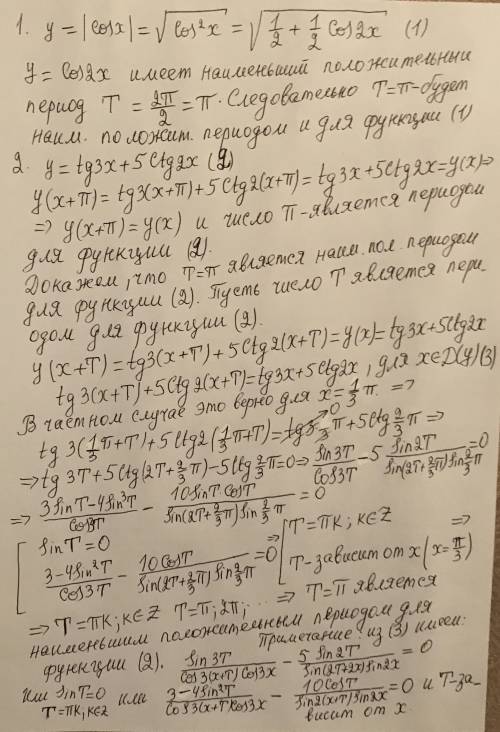 1. y = |cosx| = √cos²x = √(1/2 + 1/2 Cos2x) (1)
y = Cos2x имеет наименьший положительный
период T = 2π/2 = π. Следовательно T=π-будет
наим. положит. периодом и для функции (1)
2. y = tg3x + 5Ctg2x (2)
y(x+π) = tg3(x+π) + 5Ctg2(x+π) = tg3x + 5Ctg2x = y(x) ⇒
⇒ y(x+π) = y(x) и число π-является периодом
для функции (2).
Докажем, что T=π является наим. пол. периодом
для функции (2). Пусть число T является пери-
одом для функции (2).
y(x+T) = tg3(x+T) + 5Ctg2(x+T) = y(x) = tg3x + 5Ctg2x
tg3(x+T) + 5Ctg2(x+T) = tg3x + 5Ctg2x, для x∈D(y) (3)
В частном случае это верно для x = 1/3 π. ⇒
tg 3(1/3 π+T) + 5Ctg2(1/3 π+T) = tg3·π/3 0 + 5Ctg 2/3 π ⇒
⇒ tg 3T + 5Ctg(2T + 2/3 π) - 5Ctg 2/3 π = 0 ⇒ Sin3T/Cos3T - 5 Sin2T/(Sin(2T+2/3 π) Sin 2/3 π) = 0
⇒ (3SinT - 4Sin³T)/Cos3T - 10SinT CosT/(Sin(2T+2/3 π) Sin 2/3 π) = 0
[ SinT = 0 ⇒ [ T = πk; k∈Z ⇒
(3-4Sin²T)/Cos3T - 10CosT/(Sin(2T+2/3 π) Sin 2/3 π) = 0 T-зависит от x (x = π/3)
⇒ T = πk; k∈Z T = π; 2π; ... ⇒ T = π является
наименьшим положительным периодом для
функции (2). Примечание: из (3) имеем:
Sin3T/(Cos3(x+T) Cos3x) - 5Sin2T/(Sin(2T+2x) Sin2x) = 0
или SinT=0 или (3-4Sin²T)/(Cos3(x+T) Cos3x) - 10CosT/(Sin2(x+T) Sin2x) = 0 и T-за-
T = πk, k∈Z висит от x.